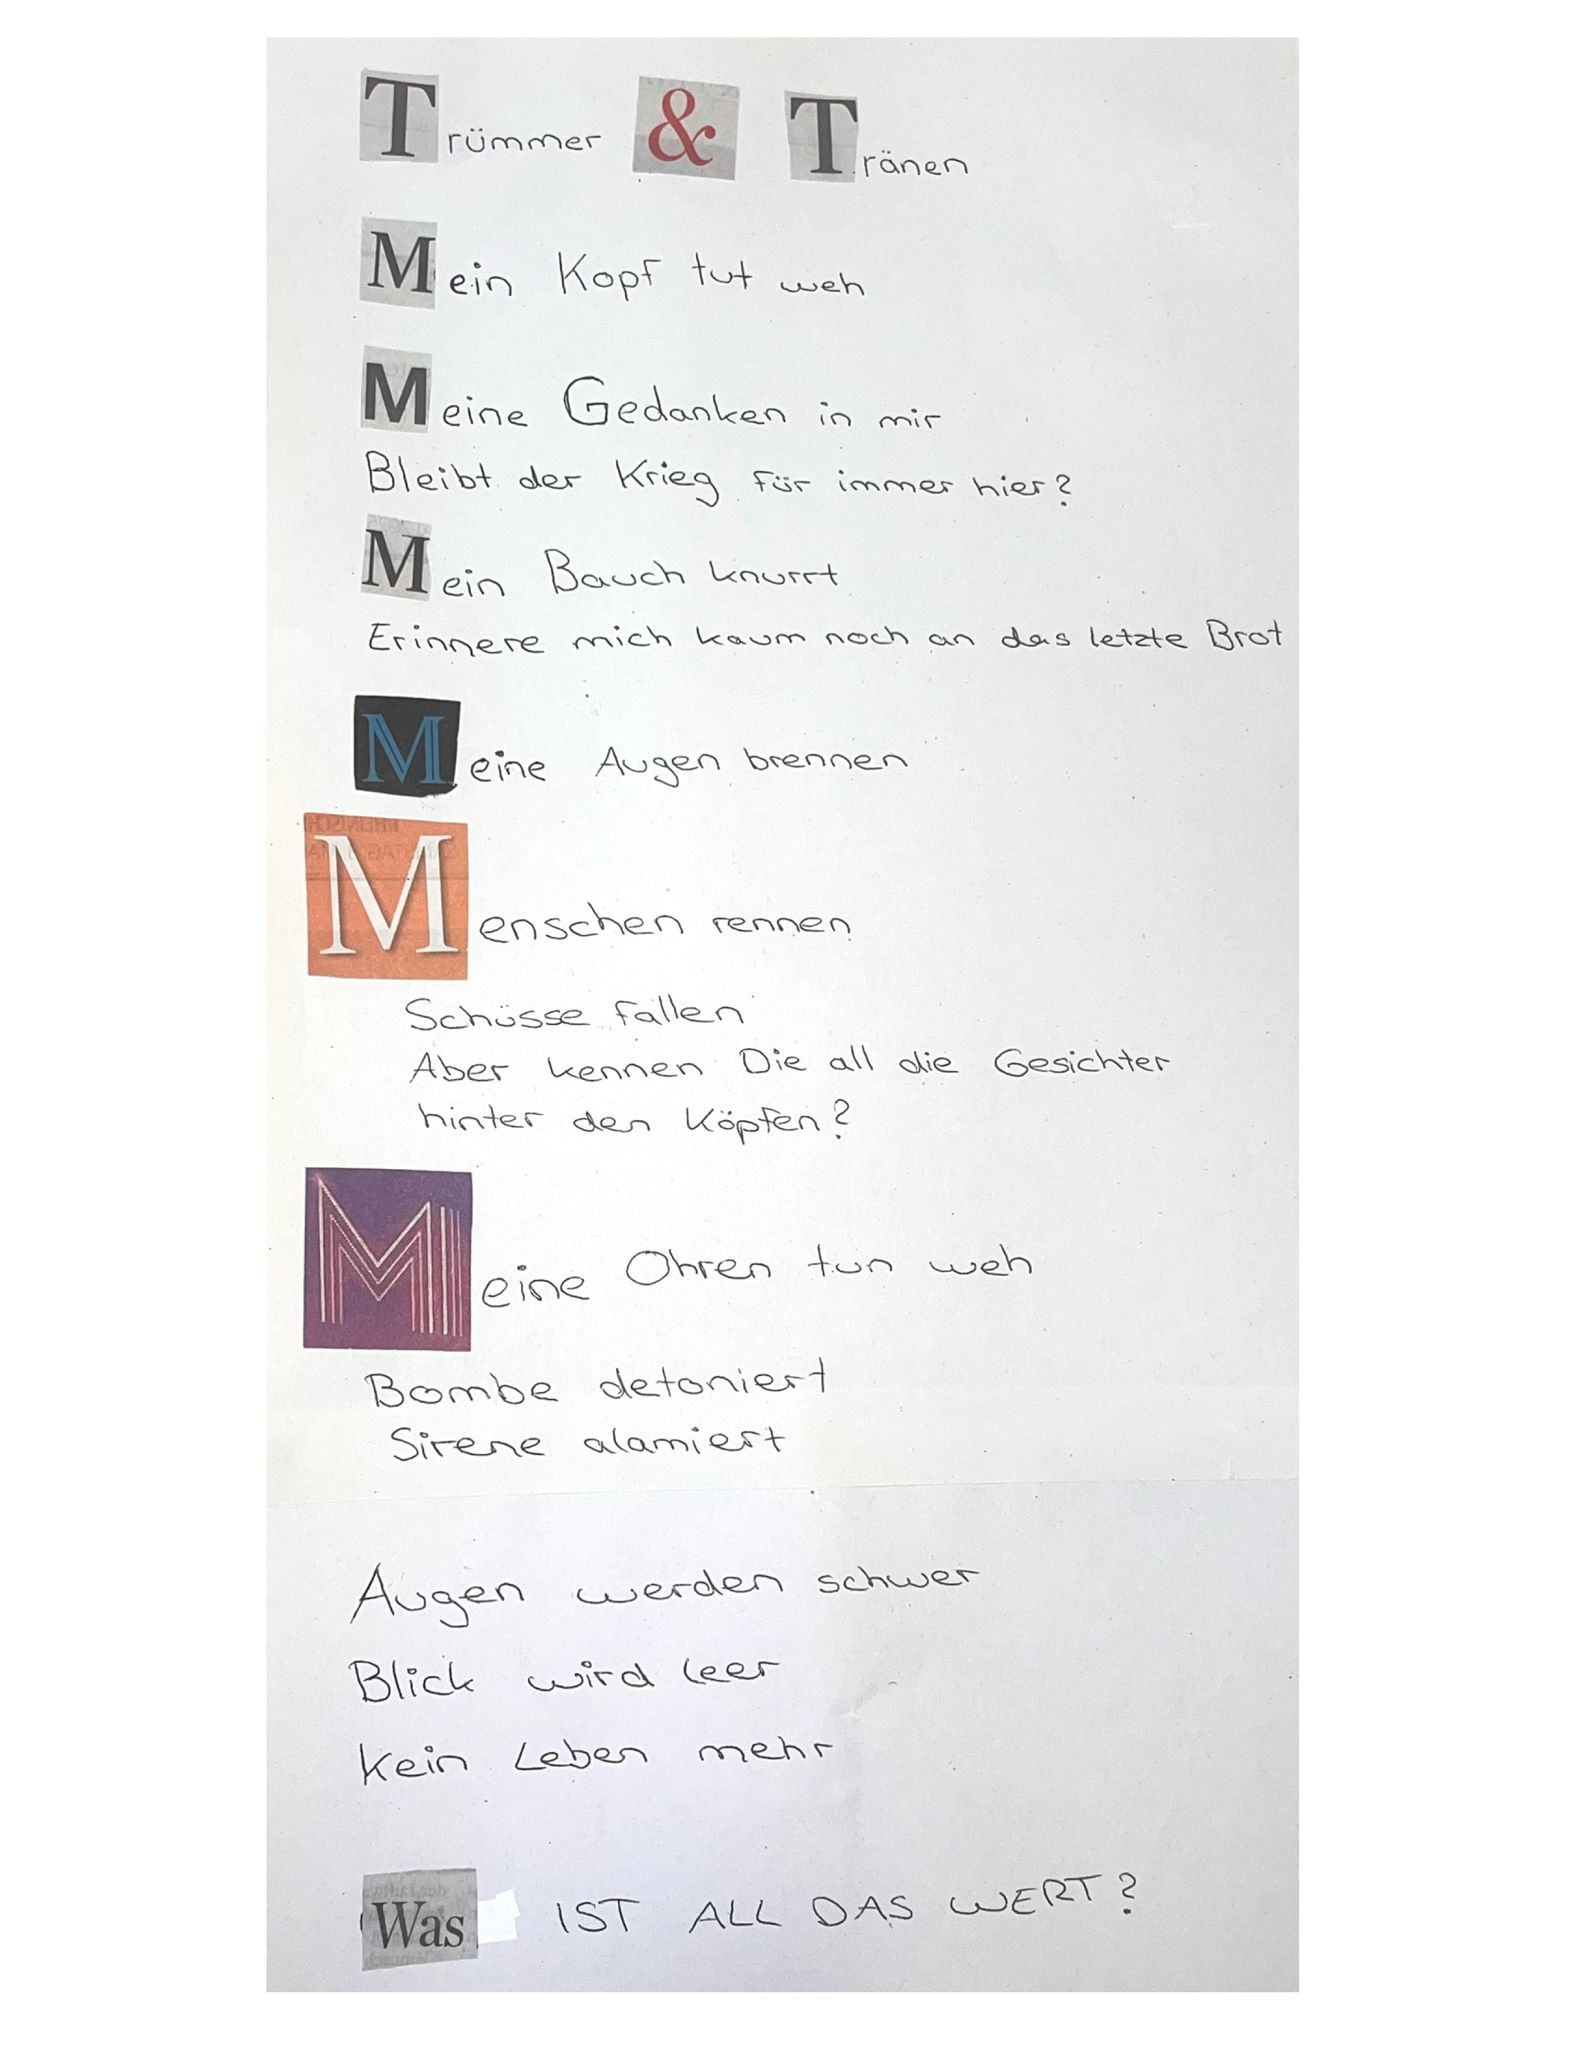 Trümmer & Tränen
Mein Kopf tut weh
Meine Gedanken in mir
Bleibt der Krieg für immer hier?
Mein Bauch knurrt
Erinnere mich kaum noch an das letzte Brot
Meine Augen brennen
Menschen rennen
Schüsse fallen
Aber kennen Die all die Gesichter
hinter den Köpfen?
Meine Ohren tun weh
Bombe detoniert
Sirene alamiert
Augen werden schwer
Blick wird leer
Kein Leben mehr
Was IST ALL DAS WERT?